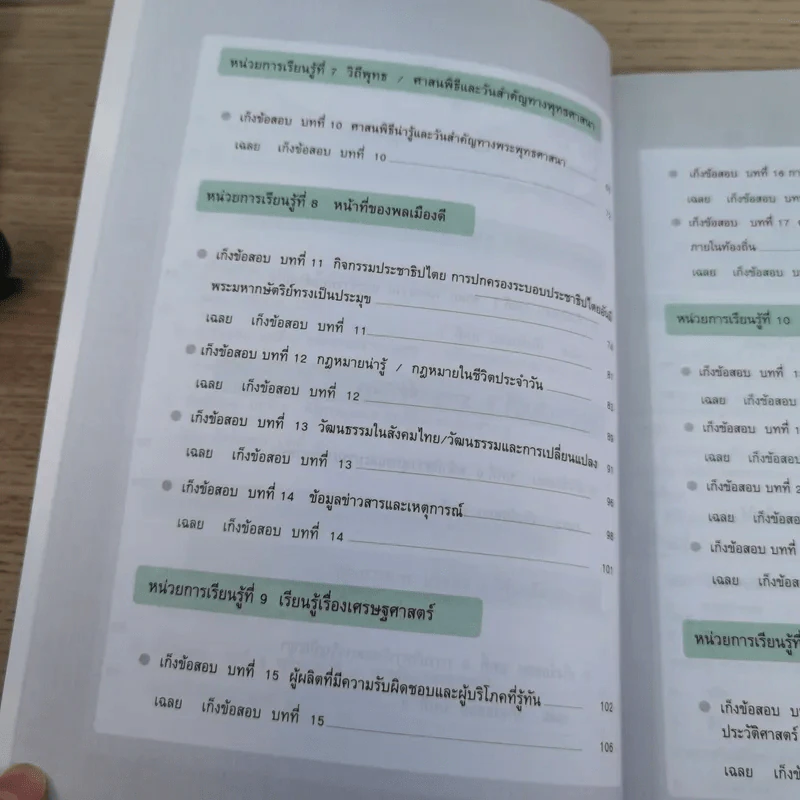 หน่วยการเรียนรู้ที่ 7 วิถีพุทธ / ศาสนพิธีและวันสำคัญทางพุทธศาสนา
เก็งข้อสอบ บทที่ 10 ศาสนพิธีน่ารู้และวันสำคัญทางพระพุทธศาสนา
เฉลย เก็งข้อสอบ บทที่ 10
หน่วยการเรียนรู้ที่ 8 หน้าที่ของพลเมืองดี
เก็งข้อสอบ บทที่ 11 กิจกรรมประชาธิปไตย การปกครองระบอบประชาธิปไตยอันมี
พระมหากษัตริย์ทรงเป็นประมุข
เฉลย เก็งข้อสอบ บทที่ 11 81
เก็งข้อสอบ บทที่ 12 กฎหมายน่ารู้ / กฎหมายในชีวิตประจำวัน
เฉลย เก็งข้อสอบ บทที่ 12
เก็งข้อสอบ บทที่ 13 วัฒนธรรมในสังคมไทย/วัฒนธรรมและการเปลี่ยนแปลง 91
เฉลย เก็งข้อสอบ บทที่ 13 96
เก็งข้อสอบ บทที่ 14 ข้อมูลข่าวสารและเหตุการณ์ 98
เฉลย เก็งข้อสอบ บทที่ 14 101
หน่วยการเรียนรู้ที่ 9 เรียนรู้เรื่องเศรษฐศาสตร์
เก็งข้อสอบ บทที่ 15 ผู้ผลิตที่มีความรับผิดชอบและผู้บริโภคที่รู้ทัน 102
เฉลย เก็งข้อสอบ บทที่ 15 106
เก็งข้อสอบ บทที่ 16
เฉลย เก็งข้อสอบ
เก็งข้อสอบ บทที่ 17
ภายในท้องถิ่น
เฉลย เก็งข้อสอบ
หน่วยการเรียนรู้ที่ 10
เก็งข้อสอบ บทที่
เฉลย เก็งข้อสอบ
เก็งข้อสอบ บทที่
เฉลย เก็งข้อสอบ
เก็งข้อสอบ บทที่
เฉลย เก็งข้อสอบ
เก็งข้อสอบ บทที่
เฉลย
หน่วยการเรียนรู้ที่
เก็งข้อสอบ
ประวัติศาสตร์
เฉลย